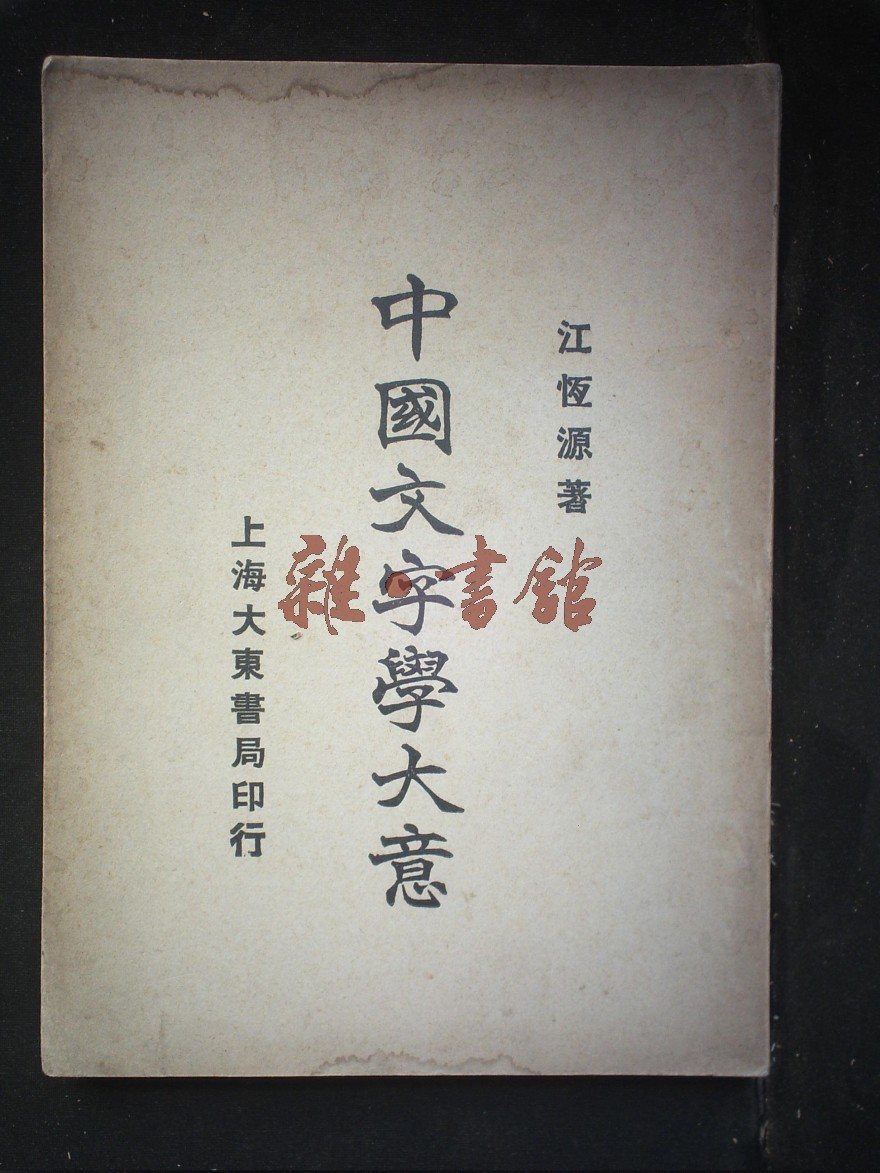 江恆源著
中國文字學大意
上海大東書局印行
雜·書館